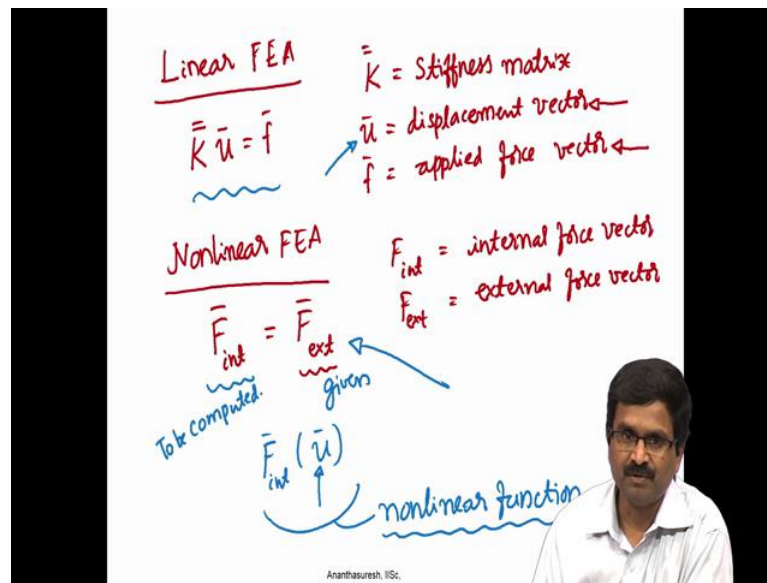 Linear FEA
K̿ ū = f̄
K̿ = stiffness matrix
ū = displacement vector
f̄ = applied force vector
Nonlinear FEA
F̄int = F̄ext
To be computed.
given
Fint = internal force vector
Fext = external force vector
F̄int (ū)
nonlinear function
Ananthasuresh, IISc,